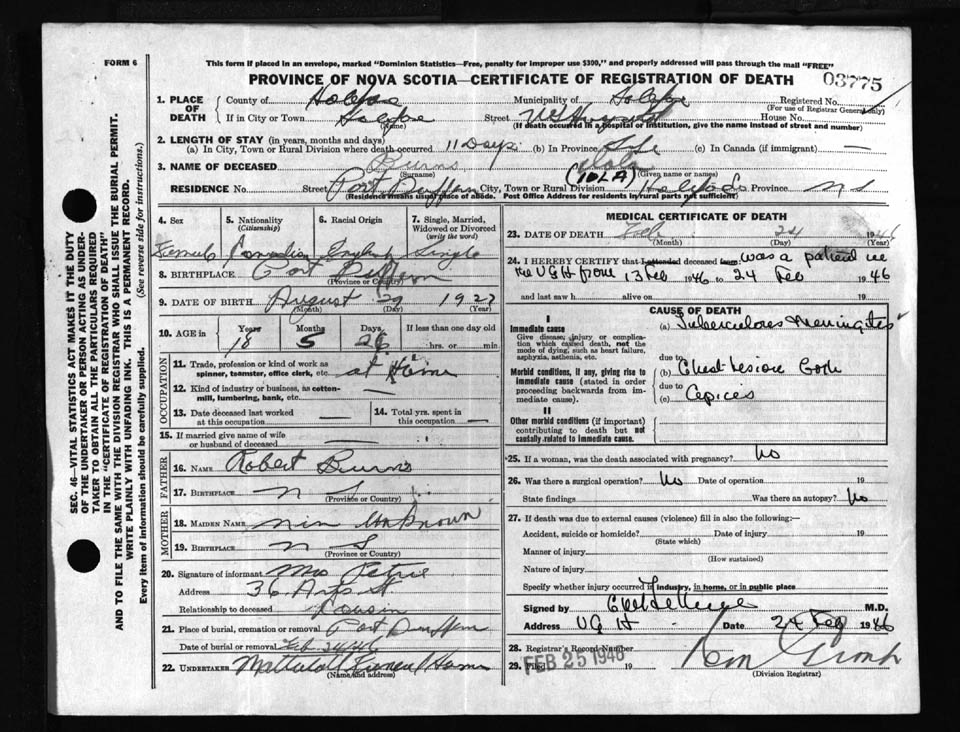 FORM 6
This form if placed in an envelope, marked "Dominion Statistics—Free, penalty for improper use $300," and properly addressed will pass through the mail "FREE"
PROVINCE OF NOVA SCOTIA—CERTIFICATE OF REGISTRATION OF DEATH
03775
1. PLACE OF DEATH County of Halifax Municipality of Halifax Registered No.
(For use of Registrar General only)
If in City or Town Halifax (Name) Street V G Hospital House No.
(If death occurred in a hospital or institution, give the name instead of street and number)
2. LENGTH OF STAY (in years, months and days)
(a) In City, Town or Rural Division where death occurred 11 Days (b) In Province Life (c) In Canada (if immigrant) —
3. NAME OF DECEASED Burns (Surname) Iola (IOLA) (Given name or names)
RESIDENCE No. Street Port Dufferin City, Town or Rural Division Halifax Co Province N S
(Residence means usual place of abode. Post Office Address for residents in rural parts not sufficient)
4. Sex 5. Nationality (Citizenship) 6. Racial Origin 7. Single, Married, Widowed or Divorced (write the word)
Female Canadian English Single
8. BIRTHPLACE Port Dufferin
(Province or Country)
9. DATE OF BIRTH August 29 1927
(Month) (Day) (Year)
10. AGE in Years Months Days If less than one day old
18 5 26 hrs. or min.
OCCUPATION
11. Trade, profession or kind of work as spinner, teamster, office clerk, etc. at Home
12. Kind of industry or business, as cotton-mill, lumbering, bank, etc. —
13. Date deceased last worked at this occupation — 14. Total yrs. spent in this occupation —
15. If married give name of wife or husband of deceased —
FATHER
16. NAME Robert Burns
17. BIRTHPLACE N S
(Province or Country)
MOTHER
18. MAIDEN NAME Unknown
19. BIRTHPLACE N S
(Province or Country)
20. Signature of informant Mrs Petrie
Address 36 St.
Relationship to deceased Cousin
21. Place of burial, cremation or removal Port Dufferin
Date of burial or removal Feb 24/46
22. UNDERTAKER Funeral Home
(Name and address)
MEDICAL CERTIFICATE OF DEATH
23. DATE OF DEATH Feb 24 1946
(Month) (Day) (Year)
24. I HEREBY CERTIFY that I attended deceased from: was a patient in
the VGH from 13 Feb 1946 to 24 Feb 1946
and last saw h alive on 19
CAUSE OF DEATH
I
Immediate cause
Give disease, injury or complication which caused death, not the mode of dying, such as heart failure, asphyxia, asthenia, etc.
(a) Tuberculous Meningitis
due to
Morbid conditions, if any, giving rise to immediate cause (stated in order proceeding backwards from immediate cause).
(b) Chest Lesion Both
due to
(c) Apices
II
Other morbid conditions (if important) contributing to death but not causally related to immediate cause.
25. If a woman, was the death associated with pregnancy? No
26. Was there a surgical operation? No Date of operation 19
State findings Was there an autopsy? No
27. If death was due to external causes (violence) fill in also the following:—
Accident, suicide or homicide? Date of injury 19
(State which)
Manner of injury
(How sustained)
Nature of injury
Specify whether injury occurred in industry, in home, or in public place
Signed by M.D.
Address VGH Date 24 Feb 1946
28. Registrar's Record Number
29. Filed FEB 25 1946 19
(Division Registrar)
SEC. 46—VITAL STATISTICS ACT MAKES IT THE DUTY
OF THE UNDERTAKER OR PERSON ACTING AS UNDER-
TAKER TO OBTAIN ALL THE PARTICULARS REQUIRED
IN THE "CERTIFICATE OF REGISTRATION OF DEATH"
AND TO FILE THE SAME WITH THE DIVISION REGISTRAR WHO SHALL ISSUE THE BURIAL PERMIT.
WRITE PLAINLY WITH UNFADING INK. THIS IS A PERMANENT RECORD.
Every item of information should be carefully supplied. (See reverse side for instructions.)